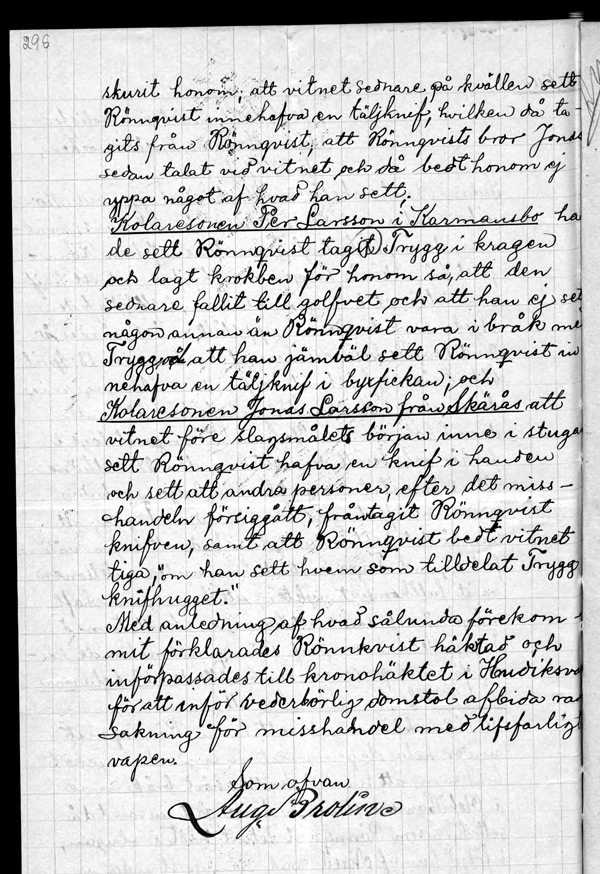 296
skurit honom; att vitnet sednare på kvällen sett
Rönnqvist innehafva en täljknif, hvilken då ta-
gits från Rönnqvist, att Rönnqvists bror Jonas
sedan talat vid vitnet och då bedt honom ej
yppa något af hvad han sett;
Kolaresonen Per Larsson i Karmansbo ha
de sett Rönnqvist tagit Trygg i kragen
och lagt krokben för honom så, att den
sednare fallit till golfvet och att han ej se
någon annan än Rönnqvist vara i bråk me
Trygg att han jämväl sett Rönnqvist in
nehafva en täljknif i byxfickan; och
Kolaresonen Jonas Larsson från Skärås att
vitnet före slagsmålets början inne i stuga
sett Rönnqvist hafva en knif i handen
och sett att andra personer, efter det miss-
handeln försiggått, fråntagit Rönnqvist
knifven, samt att Rönnqvist bedt vitnet
tiga, "om han sett hvem som tilldelat Trygg
knifhugget."
Med anledning af hvad sålunda förekom-
mit förklarades Rönnkvist häktad och
införpassades till kronohäktet i Hudiksva
för att inför vederbörlig domstol afbida ra
sakning för misshandel med lifsfarligt
vapen.
Som ofvan
Aug. Brolin